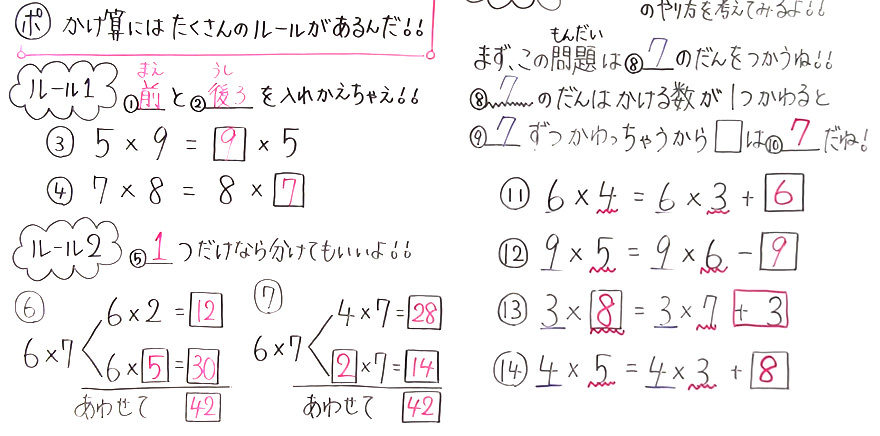 ポ かけ算には たくさんのルールがあるんだ!!
ルール1 ①前(まえ)と②後ろ(うし)を入れかえちゃえ!!
③ 5 × 9 = 9 × 5
④ 7 × 8 = 8 × 7
ルール2 ⑤1つだけなら分けてもいいよ!!
⑥ 6×7
6×2=12
6×5=30
あわせて 42
⑦ 6×7
4×7=28
2×7=14
あわせて 42
のやり方を考えてみるよ!!
まず、この問題(もんだい)は⑧7のだんをつかうね!!
⑧7のだんはかける数が1つかわると
⑨7ずつかわっちゃうから□は⑩7だね!
⑪ 6 × 4 = 6 × 3 + 6
⑫ 9 × 5 = 9 × 6 - 9
⑬ 3 × 8 = 3 × 7 + 3
⑭ 4 × 5 = 4 × 3 + 8